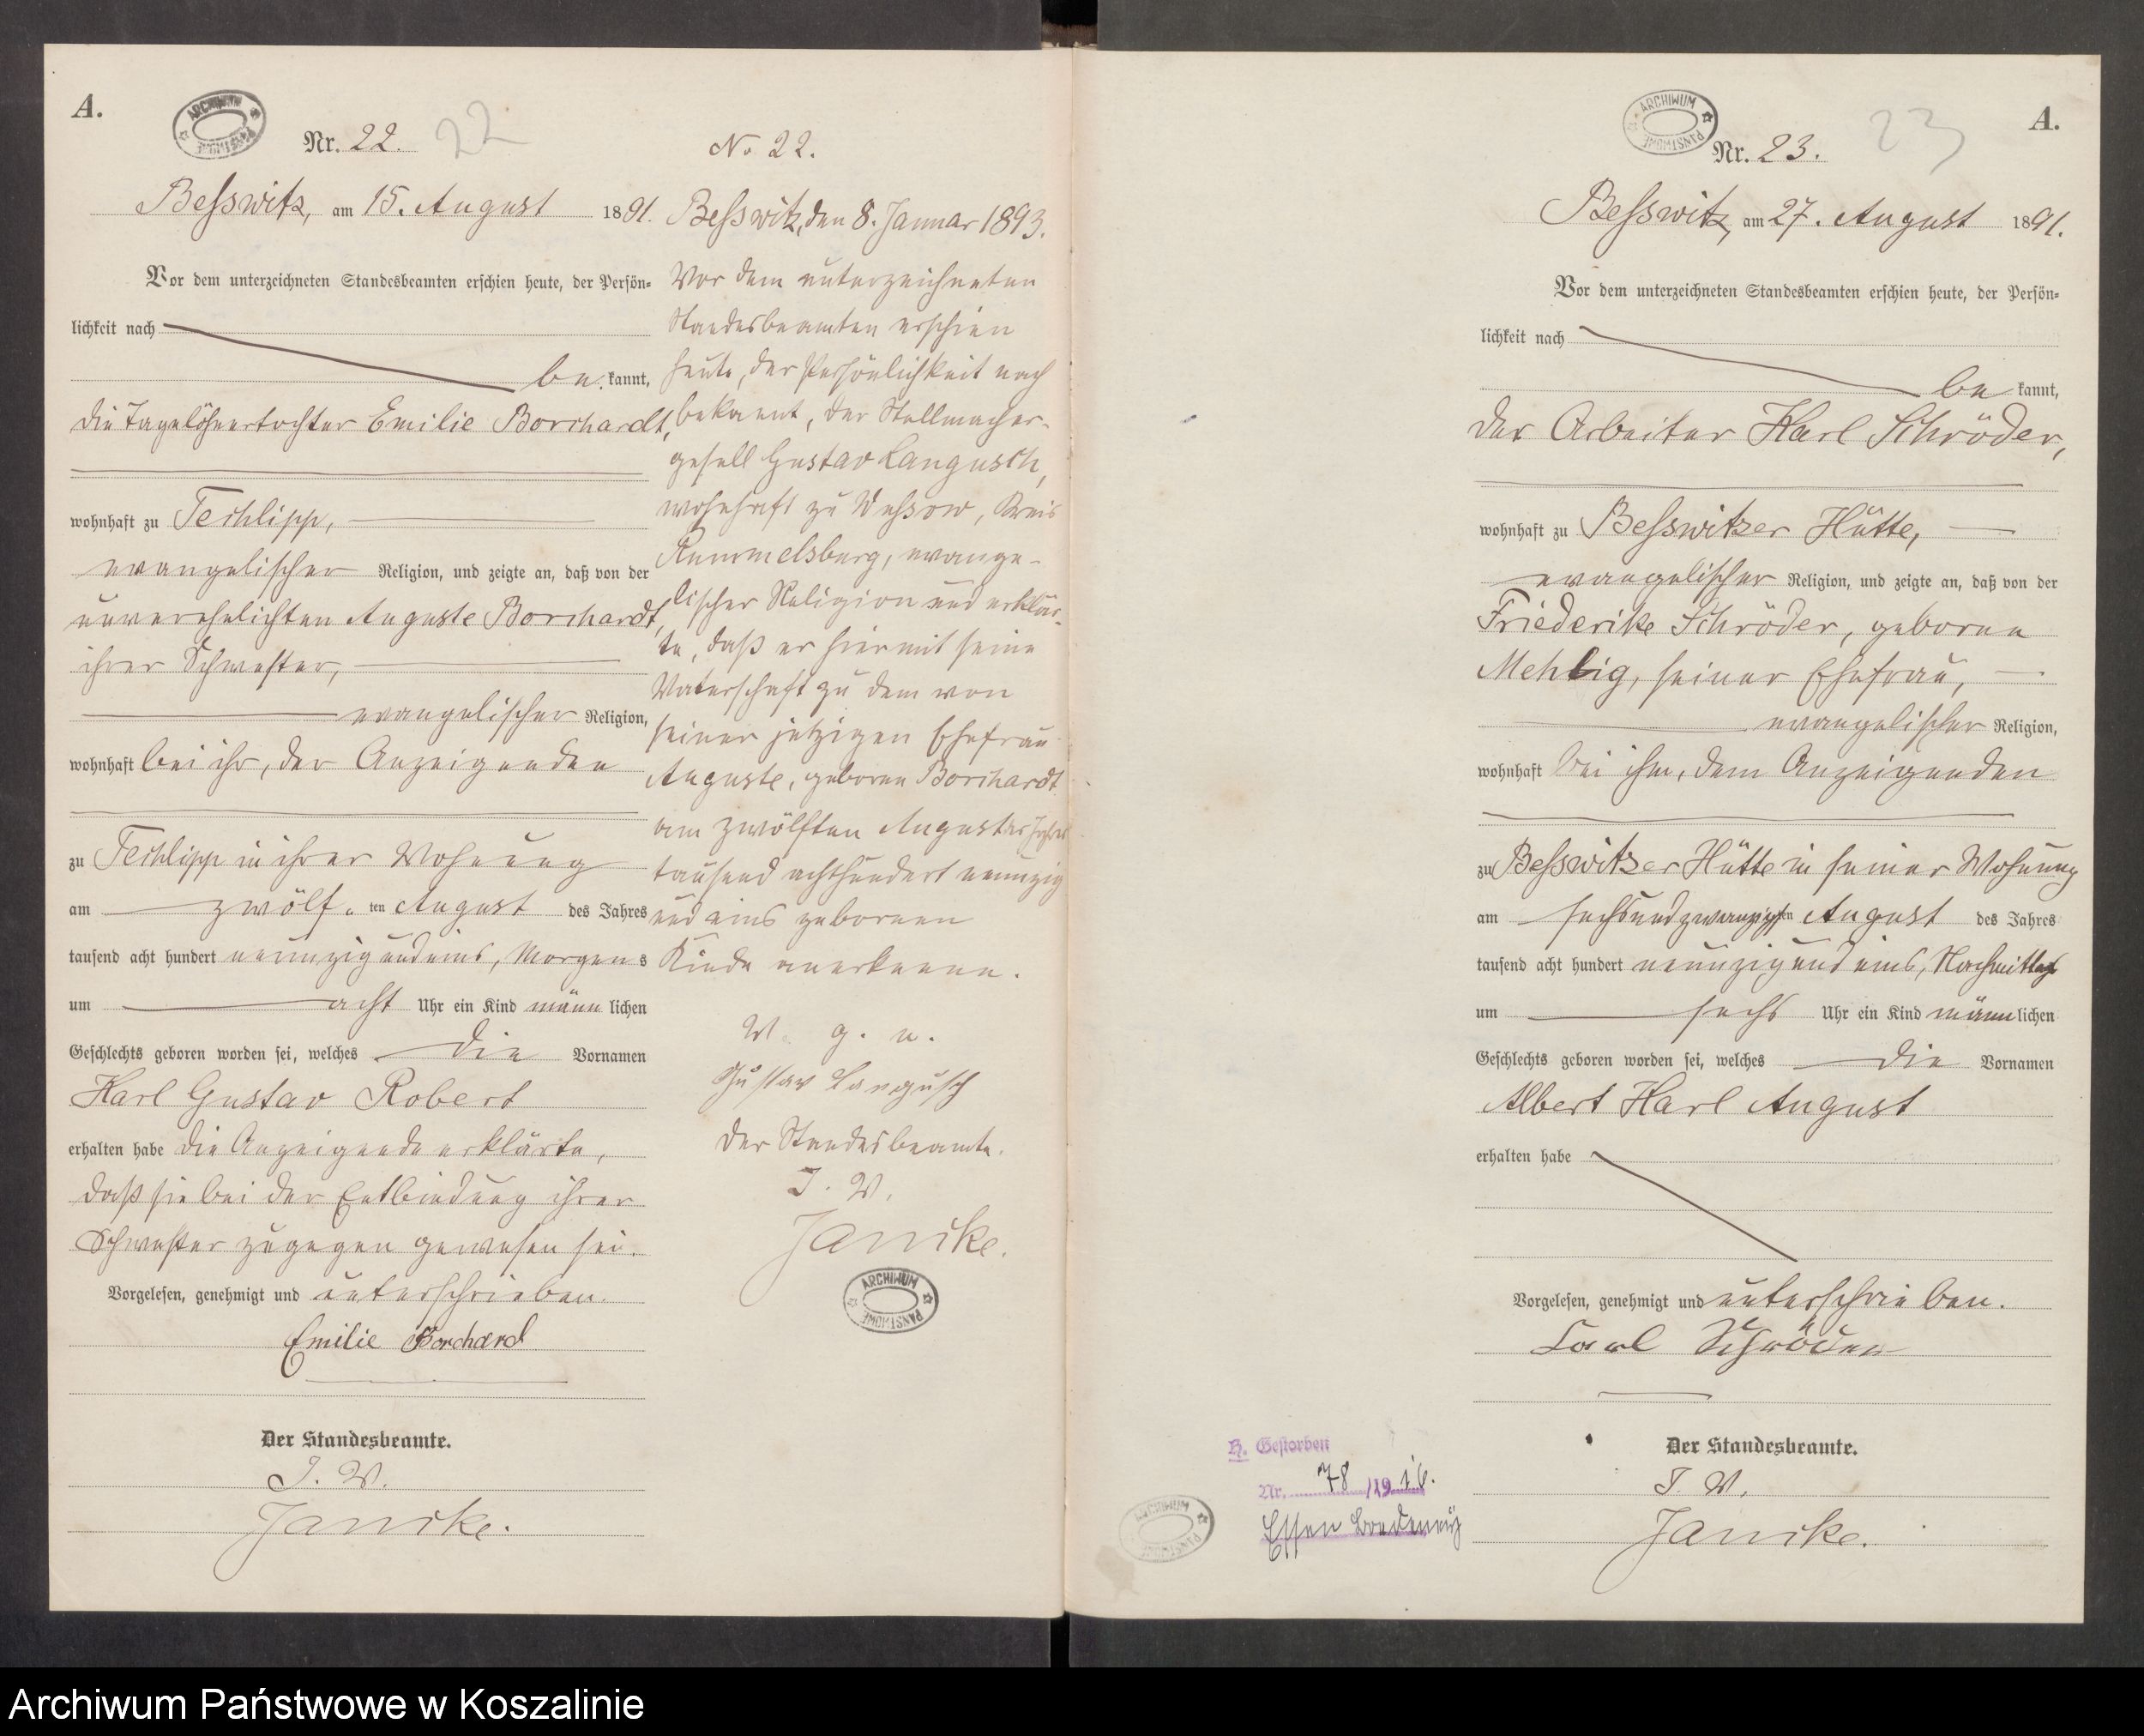 A.
ARCHIWUM PAŃSTWOWE
Nr. 22. 22
Besswitz, am 15. August 1891.
Vor dem unterzeichneten Standesbeamten erschien heute, der Persön-
lichkeit nach
be kannt,
die Tagelöhnertochter Emilie Borchardt,
wohnhaft zu Techlipp,
evangelischer Religion, und zeigte an, daß von der
unverehelichten Auguste Borchardt,
ihrer Schwester,
evangelischer Religion,
wohnhaft bei ihr, der Anzeigenden
zu Techlipp in ihrer Wohnung
am zwölf ten August des Jahres
tausend acht hundert neunzig und eins, Morgens
um acht Uhr ein Kind männ lichen
Geschlechts geboren worden sei, welches die Vornamen
Karl Gustav Robert
erhalten habe die Anzeigende erklärte,
daß sie bei der Entbindung ihrer
Schwester zugegen gewesen sei.
Vorgelesen, genehmigt und unterschrieben.
Emilie Borchard
Der Standesbeamte.
J. V.
Jancke.
No 22.
Besswitz, den 8. Januar 1893.
Vor dem unterzeichneten
Standesbeamten erschien
heute, der Persönlichkeit nach
bekannt, der Stellmacher-
gesell Gustav Langusch,
wohnhaft zu Wussow, Kreis
Rummelsburg, evange-
lischer Religion und erklär-
te, daß er hiermit seine
Vaterschaft zu dem von
seiner jetzigen Ehefrau
Auguste, geboren Borchardt
am zwölften August des Jahres
tausend achthundert neunzig
und eins geborenen
Kinde anerkenne.
V. g. u.
Gustav Langusch
Der Standesbeamte.
J. V.
Jancke.
ARCHIWUM PAŃSTWOWE
A.
ARCHIWUM PAŃSTWOWE
Nr. 23. 23
Besswitz, am 27. August 1891.
Vor dem unterzeichneten Standesbeamten erschien heute, der Persön-
lichkeit nach
be kannt,
der Arbeiter Karl Schröder,
wohnhaft zu Besswitzer Hütte,
evangelischer Religion, und zeigte an, daß von der
Friederike Schröder, geborene
Mehlig, seiner Ehefrau,
evangelischer Religion,
wohnhaft bei ihm, dem Anzeigenden
zu Besswitzer Hütte in seiner Wohnung
am sechsundzwanzigsten August des Jahres
tausend acht hundert neunzig und eins, Nachmittags
um sechs Uhr ein Kind männ lichen
Geschlechts geboren worden sei, welches die Vornamen
Albert Karl August
erhalten habe
Vorgelesen, genehmigt und unterschrieben.
Carl Schröder
Der Standesbeamte.
J. V.
Jancke.
H. Gestorben
Nr. 78 /1916.
Essen Bredeney
ARCHIWUM PAŃSTWOWE
Archiwum Państwowe w Koszalinie